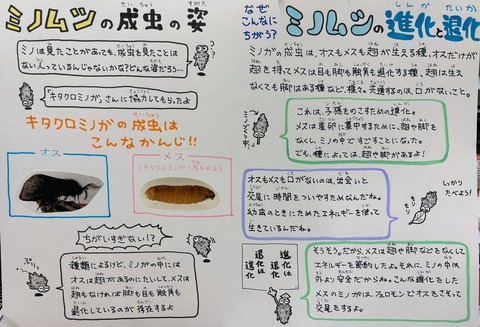 ミノムシの成虫の姿
ミノは見たことがあっても、成虫を見たことは
ない人っているんじゃないかな？どんな姿だろう…
「キタクロミノガ」さんに協力してもらったよ
キタクロミノガの成虫は
こんなかんじ!!
オス
メス
(キタクロミノガと思われる)
ちがいすぎない!?
ぷりっ
種類によるけど、ミノガの中には
オスは翅があるのにたいして、メスは
翅もなければ脚も目も触角も
退化しているのが存在するよ
なぜこんなにちがう？
ミノムシの進化と退化
ミノガの成虫は、オスもメスも翅が生える種、オスだけが
翅を持ってメスは目も脚も触角も退化する種、翅は生え
なくても脚はある種など、様々。共通するのは口がないこと。
これは、子孫をのこすための進化。
メスは産卵に集中するために、翅や脚を
なくし、ミノの中ですごすことになった。
でも、種によっては、翅や脚があるよ！
オスもメスも口がないのは、出会いと
交尾に時間をついやすためなんだね。
幼虫のときにためたエネルギーを使って
生きているんだね。
しっかり
たべよう！
もりもり
退化は
進化
進化は
退化
そうそう。だから、メスは翅や脚などをなくして
エネルギーを節約したよ。それに、ミノの中は
外より安全だからね。こんな進化をした
メスのミノガは、フェロモンでオスをさそって
交尾をするよ。